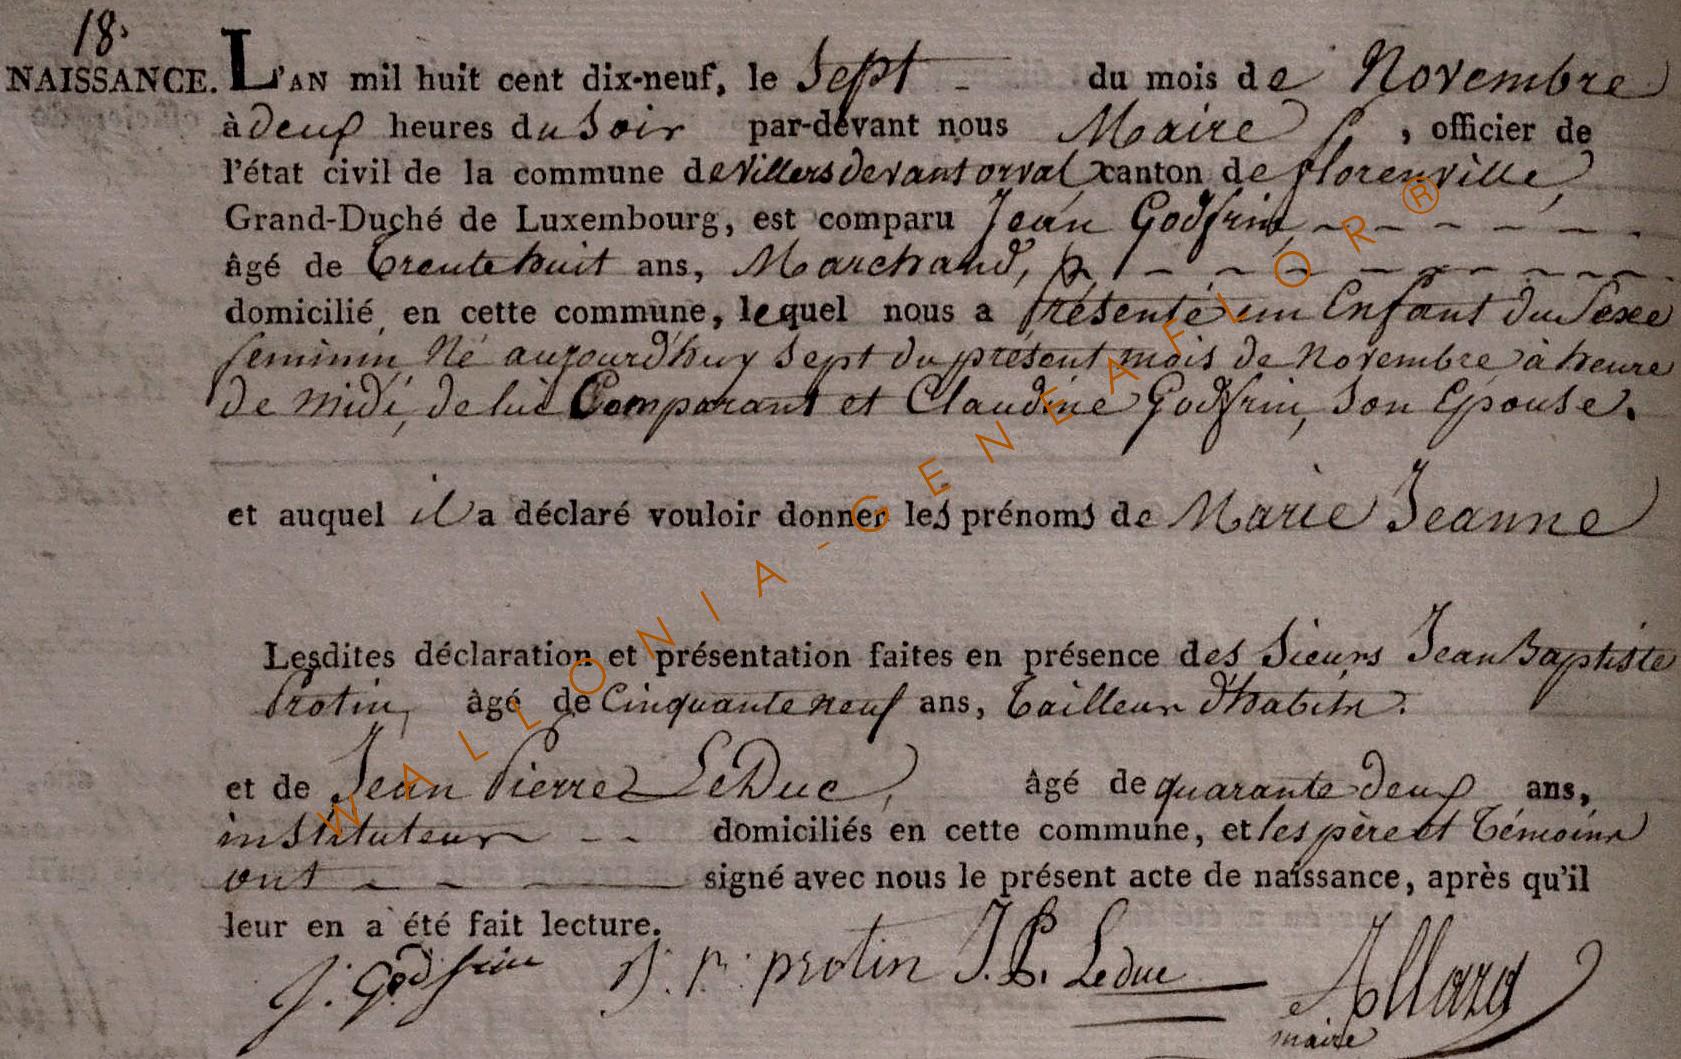 18.
NAISSANCE. L'AN mil huit cent dix-neuf, le Sept du mois de Novembre
à deux heures du Soir par-devant nous Maire, officier de
l'état civil de la commune de Villers devant orval canton de florenville,
Grand-Duché de Luxembourg, est comparu Jean Godfrin,
âgé de trente huit ans, Marchand,
domicilié en cette commune, lequel nous a présenté un Enfant du Sexe
feminin Né aujourd'huy Sept du présent mois de Novembre à heure
de midi, de lui Comparant et Claudine Godfrin, Son Epouse.
et auquel il a déclaré vouloir donner les prénoms de Marie Jeanne
Lesdites déclaration et présentation faites en présence des Sieurs Jean Baptiste
Protin, âgé de Cinquante neuf ans, Tailleur d'habits.
et de Jean Pierre LeDuc, âgé de quarante deux ans,
instituteur domiciliés en cette commune, et les père et Témoins
ont signé avec nous le présent acte de naissance, après qu'il
leur en a été fait lecture.
J. Godfrin protin J. P. Leduc Allard
maire
WALLONIA-GENEAFLOR®